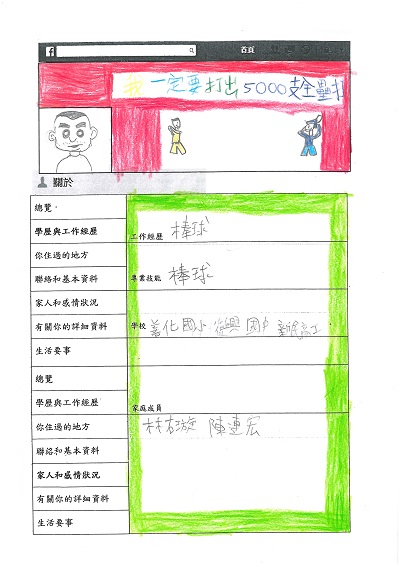 f
首頁
我一定要打出5000支全壘打
關於
總覽
學歷與工作經歷
工作經歷 棒球
你住過的地方
聯絡和基本資料
專業技能 棒球
家人和感情狀況
有關你的詳細資料
學校 善化國小 復興國中
生活要事
總覽
學歷與工作經歷
家庭成員
你住過的地方
陳連宏
聯絡和基本資料
家人和感情狀況
有關你的詳細資料
生活要事